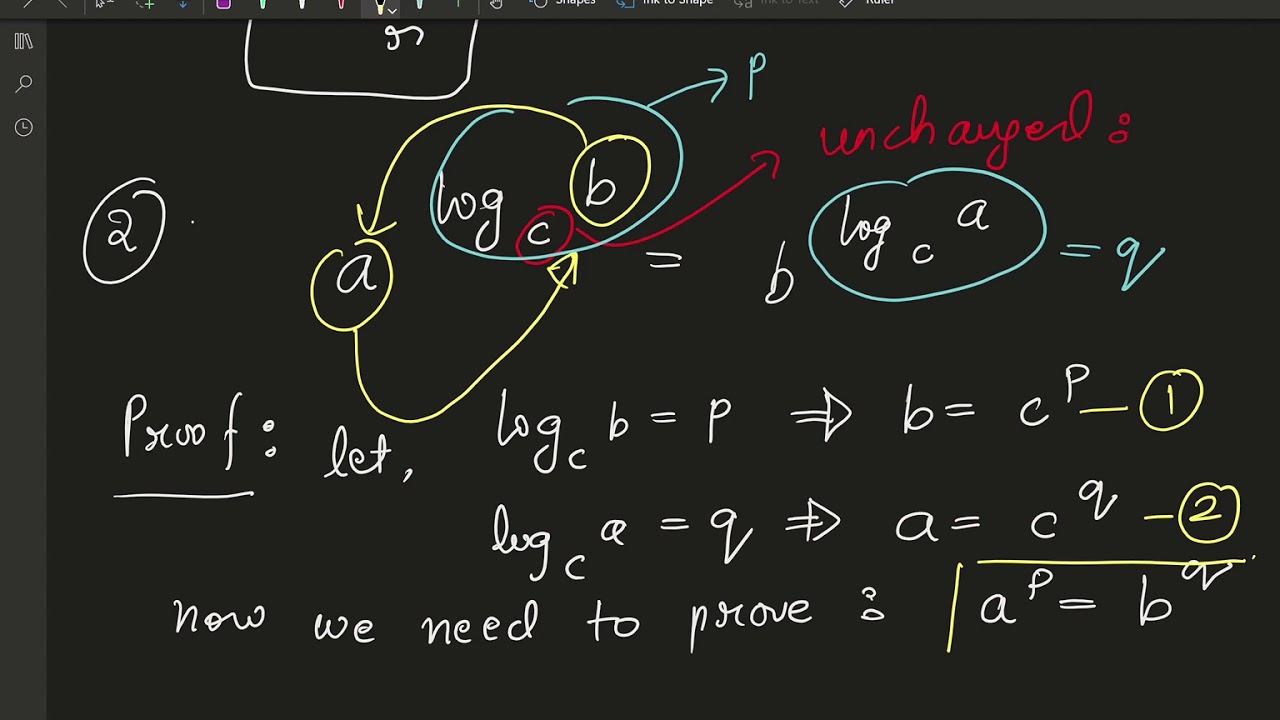 Shapes Ink to Shape Ink to Text Ruler
p
unchanged:
② a^(log_c b) = b^(log_c a) = q
Proof: let, log_c b = p ⇒ b = c^p — ①
log_c a = q ⇒ a = c^q — ②
now we need to prove : a^p = b^q